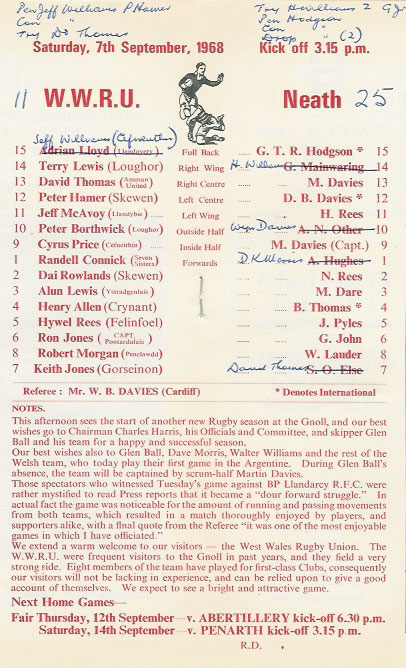 Pen Jeff Williams P Hamer
Con "
Try Do Thomas
Try H Williams 2
Pen Hodgson
Con "
Drop " (2)
Saturday, 7th September, 1968 Kick off 3.15 p.m.
11 W.W.R.U. Neath 25
Jeff Williams (Cefneithin)
15 Adrian Lloyd (Llandovery) Full Back G. T. R. Hodgson * 15
14 Terry Lewis (Loughor) Right Wing H. Williams G. Mainwaring 14
13 David Thomas (Amman United) Right Centre M. Davies 13
12 Peter Hamer (Skewen) Left Centre D. B. Davies * 12
11 Jeff McAvoy (Llandybie) Left Wing H. Rees 11
10 Peter Borthwick (Loughor) Outside Half Wyn Davies A. N. Other 10
9 Cyrus Price (Cefneithin) Inside Half M. Davies (Capt.) 9
1 Randell Connick (Seven Sisters) Forwards D. K. A. Hughes 1
2 Dai Rowlands (Skewen) N. Rees 2
3 Alun Lewis (Ystradgynlais) M. Dare 3
4 Henry Allen (Crynant) B. Thomas * 4
5 Hywel Rees (Felinfoel) J. Pyles 5
6 Ron Jones (CAPT. Pontardulais) G. John 6
8 Robert Morgan (Penclawdd) W. Lauder 8
7 Keith Jones (Gorseinon) David Thomas S. O. Else 7
Referee : Mr. W. B. DAVIES (Cardiff) * Denotes International
NOTES.
This afternoon sees the start of another new Rugby season at the Gnoll, and our best
wishes go to Chairman Charles Harris, his Officials and Committee, and skipper Glen
Ball and his team for a happy and successful season.
Our best wishes also to Glen Ball, Dave Morris, Walter Williams and the rest of the
Welsh team, who today play their first game in the Argentine. During Glen Ball's
absence, the team will be captained by scrum-half Martin Davies.
Those spectators who witnessed Tuesday's game against BP Llandarcy R.F.C. were
rather mystified to read Press reports that it became a "dour forward struggle." In
actual fact the game was noticeable for the amount of running and passing movements
from both teams, which resulted in a match thoroughly enjoyed by players, and
supporters alike, with a final quote from the Referee "it was one of the most enjoyable
games in which I have officiated."
We extend a warm welcome to our visitors — the West Wales Rugby Union. The
W.W.R.U. were frequent visitors to the Gnoll in past years, and they field a very
strong side. Eight members of the team have played for first-class Clubs, consequently
our visitors will not be lacking in experience, and can be relied upon to give a good
account of themselves. We expect to see a bright and attractive game.
Next Home Games—
Fair Thursday, 12th September—v. ABERTILLERY kick-off 6.30 p.m.
Saturday, 14th September—v. PENARTH kick-off 3.15 p.m.
R.D.